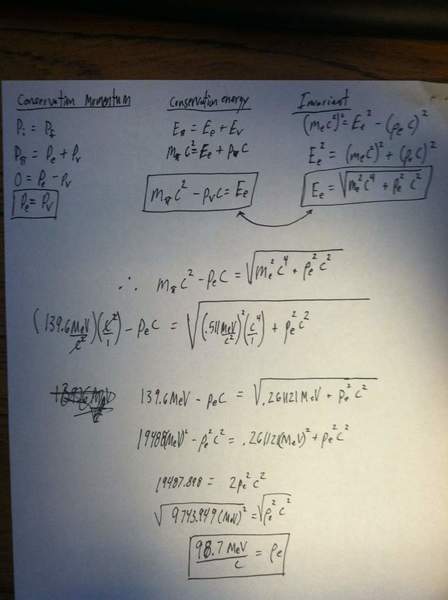 Conservation Momentum
P_i = P_f
P_π = P_e + P_ν
0 = P_e - P_ν
P_e = P_ν
Conservation energy
E_π = E_e + E_ν
m_π c² = E_e + p_ν c
m_π c² - p_ν c = E_e
Invariant
(m_e c²)² = E_e² - (p_e c)²
E_e² = (m_e c²)² + (p_e c)²
E_e = √(m_e² c⁴ + p_e² c²)
∴ m_π c² - p_e c = √(m_e² c⁴ + p_e² c²)
(139.6 MeV/c²)(c²/1) - p_e c = √((.511 MeV/c²)²(c⁴/1) + p_e² c²)
139.6 MeV - p_e c = √(.261121 MeV + p_e² c²)
19488(MeV)² - p_e² c² = .261121(MeV)² + p_e² c²
19487.898 = 2p_e² c²
√(9743.949 (MeV)²) = √(p_e² c²)
98.7 MeV/c = p_e